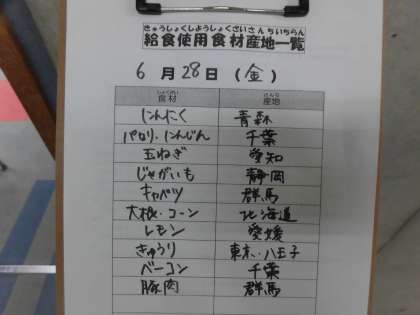 きゅうしょくしようしょくざいさんちいちらん
給食使用食材産地一覧
6月28日(金)
しょくざい さんち
食材 産地
にんにく 青森
パセリ・にんじん 千葉
玉ねぎ 愛知
じゃがいも 静岡
キャベツ 群馬
大根・コーン 北海道
レモン 愛媛
きゅうり 東京・八王子
ベーコン 千葉
豚肉 群馬